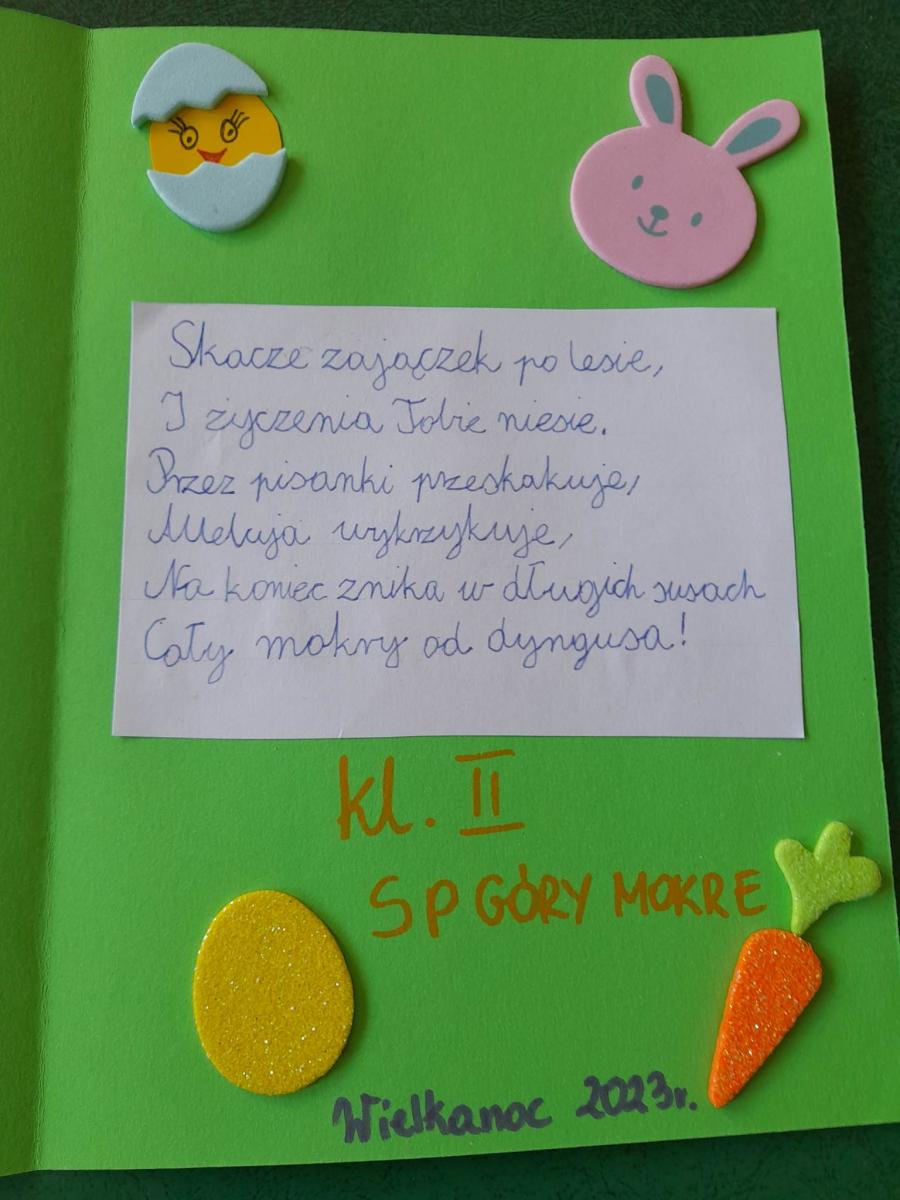 Skacze zajączek po lesie,
I życzenia Tobie niesie.
Przez pisanki przeskakuje,
Alleluja wykrzykuje,
Na koniec znika w długich susach
Cały mokry od dyngusa!
kl. II
SP GÓRY MOKRE
Wielkanoc 2023r.